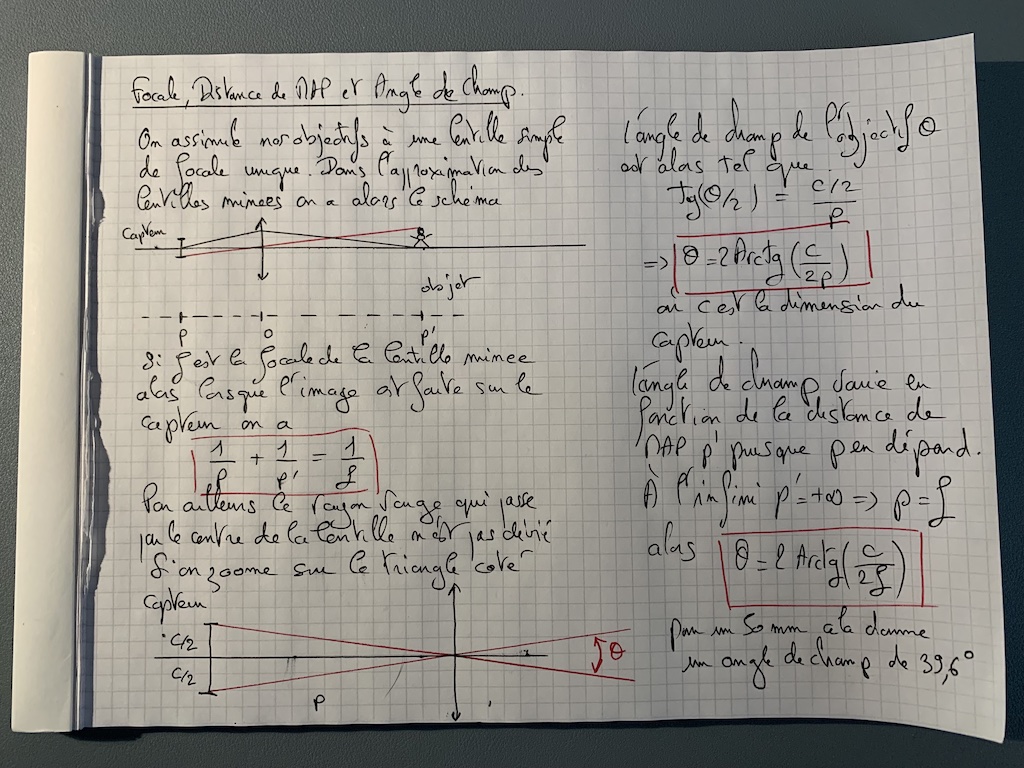 Focale, Distance de MAP et Angle de Champ.
On assimile nos objectifs à une lentille simple
de focale unique. Dans l'approximation des
lentilles minces on a alors le schéma
Capteur
objet
P O P'
Si f est la focale de la lentille mince
alors lorsque l'image est faite sur le
capteur on a
1/P + 1/P' = 1/f
Par ailleurs le rayon rouge qui passe
par le centre de la lentille n'est pas dévié
Si on zoome sur le triangle coté
capteur
C/2
C/2
θ
P
L'angle de champ de l'objectif θ
est alors tel que
Tg(θ/2) = (c/2)/P
=> θ = 2 Arctg (c/2p)
où c est la dimension du
capteur.
L'angle de champ varie en
fonction de la distance de
MAP p' puisque p en dépend.
À l'infini p' = +∞ => p = f
alors θ = 2 Arctg (c/2f)
pour un 50 mm cela donne
un angle de champ de 39,6°